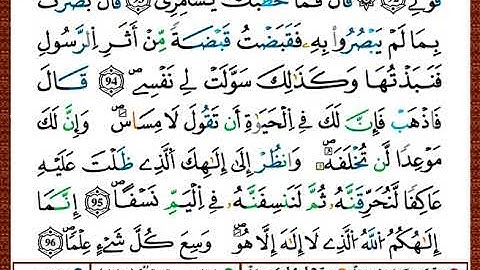 قَوْلِے ۝ قَالَ فَمَا خَطْبُكَ يَٰسَٰمِرِىُّ ۝ قَالَ بَصُرْتُ
بِمَا لَمْ يَبْصُرُواْ بِهِۦ فَقَبَضْتُ قَبْضَةٗ مِّنْ أَثَرِ اِ۬لرَّسُولِ
فَنَبَذْتُهَا وَكَذَٰلِكَ سَوَّلَتْ لِے نَفْسِے ۖ 94 قَالَ
فَاذْهَبْ فَإِنَّ لَكَ فِے اِ۬لْحَيَوٰةِ أَن تَقُولَ لَا مِسَاسَ ۖ وَإِنَّ لَكَ
مَوْعِداٗ لَّن تُخْلَفَهُۥ ۖ وَانظُرْ إِلَىٰٓ إِلَٰهِكَ اَ۬لذِے ظَلْتَ عَلَيْهِ
عَاكِفاٗ لَّنُحَرِّقَنَّهُۥ ثُمَّ لَنَنسِفَنَّهُۥ فِے اِ۬لْيَمِّ نَسْفاً ۖ 95 اِنَّمَآ
إِلَٰهُكُمُ اُ۬للَّهُ اُ۬لذِے لَآ إِلَٰهَ إِلَّا هُوَ ۖ وَسِعَ كُلَّ شَےْءٍ عِلْماٗ ۖ 96